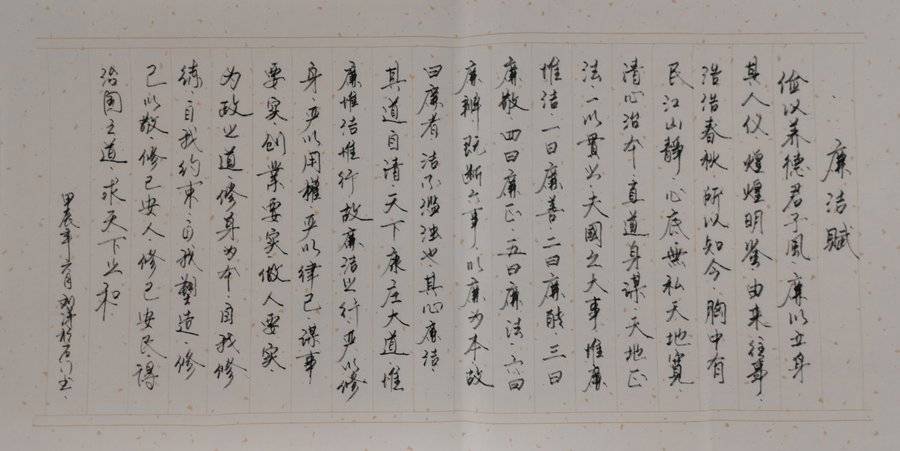 廉洁赋
俭以养德君子风，廉以立身
其人仪，煌煌明鉴，由来往事，
浩浩春秋，所以知今，胸中有
民江山静，心底无私天地宽，
清心治本，直道身谋，天地正
法，一以贯之，夫國之大事，惟廉
惟洁，一曰廉善，二曰廉能，三曰
廉敬，四曰廉正，五曰廉法，六曰
廉辨，既断六事，以廉为本，故
曰廉者，洁不滥浊也，其心廉洁
其道自清，天下康庄大道，惟
廉惟洁惟行，故廉洁之行，严以修
身，严以用權，严以律己，谋事
要实，创業要实，做人要实
为政之道，修身为本，自我修
练，自我约束，自我塑造，修
己以敬，修己安人，修己安民，得
治国之道，求天下之和，
甲辰年六月